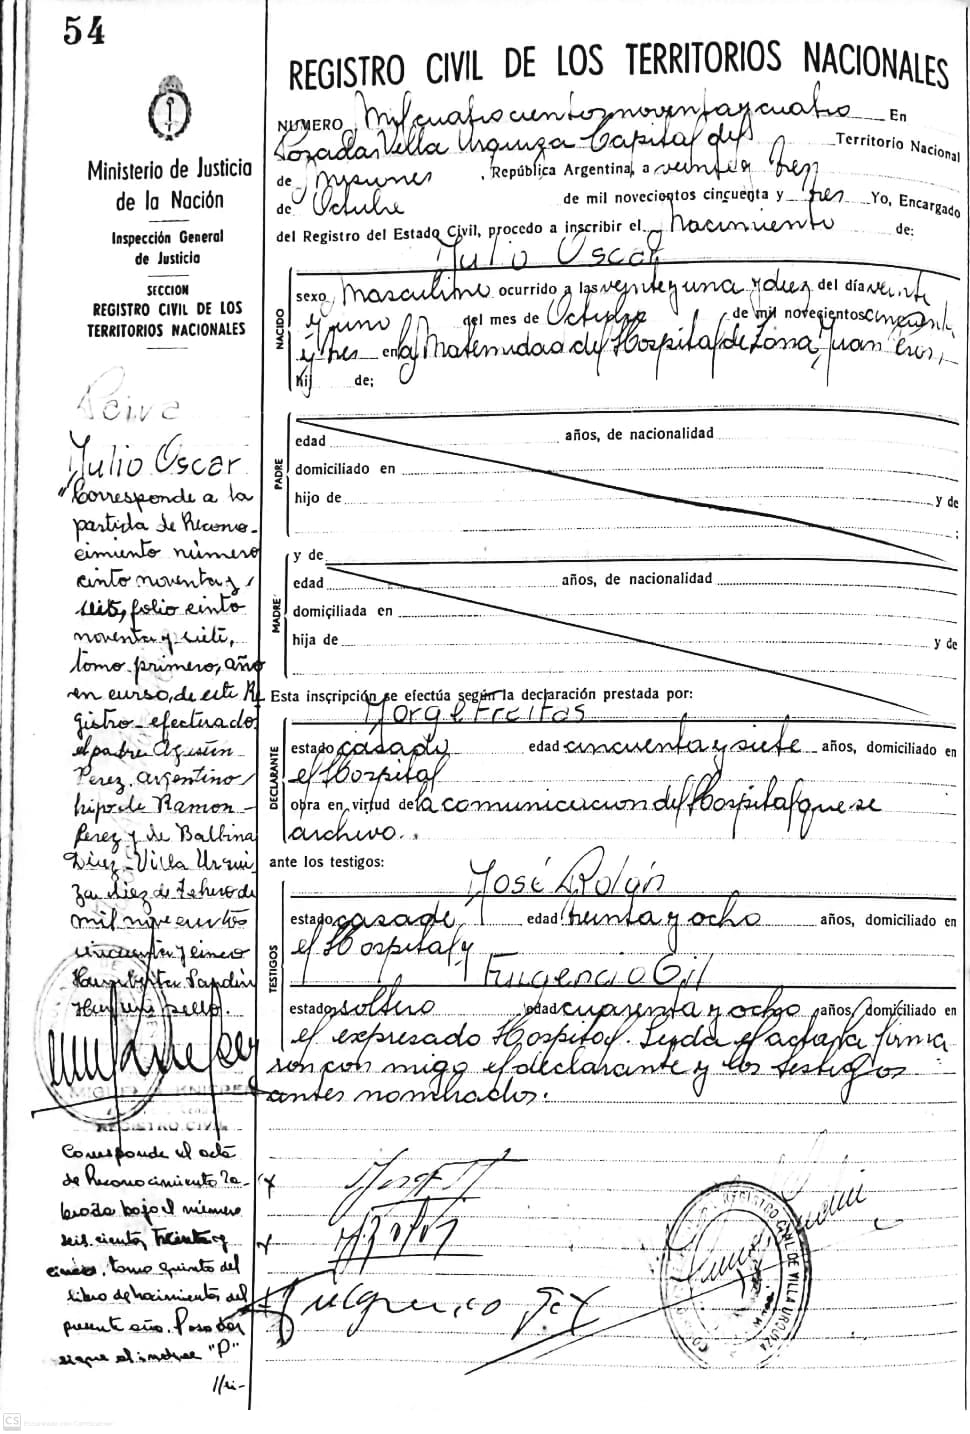 54
Ministerio de Justicia
de la Nación
Inspección General
de Justicia
SECCION
REGISTRO CIVIL DE LOS
TERRITORIOS NACIONALES
REGISTRO CIVIL DE LOS TERRITORIOS NACIONALES
NUMERO Mil cuatrocientos noventa y cuatro En
Pozadas Villa Urquiza Capital del Territorio Nacional
de Misiones , República Argentina, a veinte y tres
de Octubre de mil novecientos cincuenta y tres Yo, Encargado
del Registro del Estado Civil, procedo a inscribir el nacimiento de:
Julio Oscar
NACIDO
sexo Masculino ocurrido a las veinte y una y diez del día veinte
y uno del mes de Octubre de mil novecientos cincuenta
y tres en la Maternidad del Hospital de Zona, Juan
Hij de;
PADRE
edad años, de nacionalidad
domiciliado en
hijo de y de
;
MADRE
y de
edad años, de nacionalidad
domiciliada en
hija de y de
Esta inscripción se efectúa según la declaración prestada por:
Jorge Freitas
DECLARANTE
estado casado edad cincuenta y siete años, domiciliado en
el Hospital
obra en virtud de la comunicacion del Hospital que se
archivo.
ante los testigos:
José Roldán
TESTIGOS
estado casado edad treinta y ocho años, domiciliado en
el Hospital y
Fugencio Gil
estado soltero edad cuarenta y ocho años, domiciliado en
el expresado Hospital. Leida el acta la firma
ron con migo el declarante y los testigos
antes nombrados.
Julio Oscar
"Corresponde a la
partida de Recono-
cimiento número
ciento noventa y
seis, folio ciento
noventa y siete,
tomo primero, año
en curso, de este Re
gistro efectuado
el padre Agustín
Perez, argentino
hijo de Ramon
Perez y de Balbina
Diez - Villa Urqui
za diez de Febrero de
mil novecientos
cincuenta y cinco
Hay un sello.
REGISTRO CIVIL
Corresponde el acta
de Reconocimiento la-
brada bajo el número
seis cientos treinta y
cinco, tomo quinto del
libro de nacimientos del
presente año. Paso
sigue al indice "P"
REGISTRO CIVIL DE VILLA URQUIZA
CS